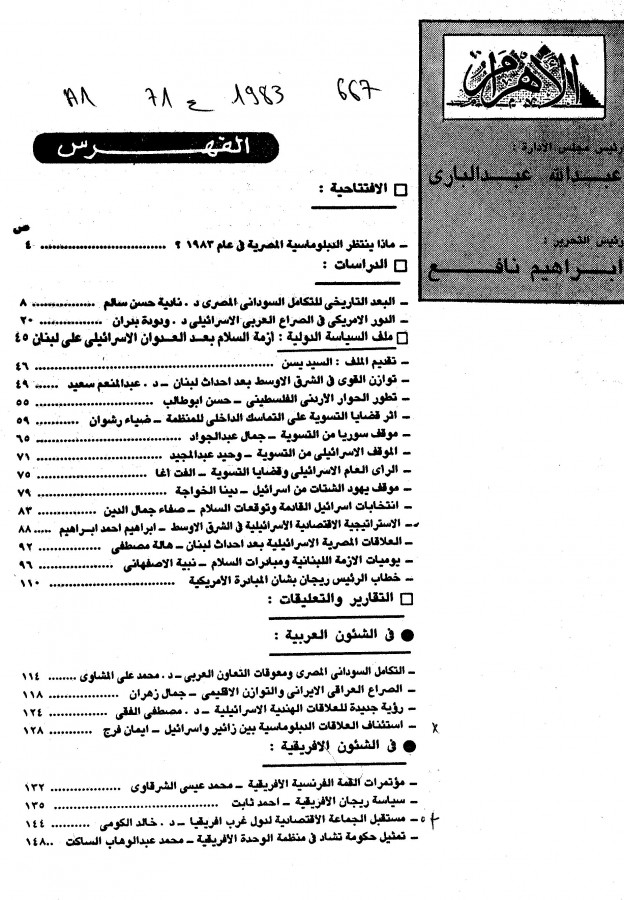 667 1983 ع 71 A1
الأهرام
رئيس مجلس الادارة :
عبدالله عبدالبارى
رئيس التحرير :
ابراهيم نافع
الفهرس
□ الافتتاحية :
ص
– ماذا ينتظر الدبلوماسية المصرية فى عام ١٩٨٣ ؟ .......................... ٤
□ الدراسات :
– البعد التاريخى للتكامل السودانى المصرى د . نادية حسن سالم ............. ٨
– الدور الامريكى فى الصراع العربى الاسرائيلى د . ودودة بدران ............... ٢٠
□ ملف السياسة الدولية : ازمة السلام بعد العدوان الاسرائيلى على لبنان ٤٥
– تقديم الملف : السيد يسن .................................................. ٤٦
– توازن القوى في الشرق الاوسط بعد احداث لبنان – د . عبدالمنعم سعيد ...... ٤٩
– تطور الحوار الأردنى الفلسطينى – حسن ابوطالب ............................. ٥٥
– اثر قضايا التسوية على التماسك الداخلى للمنظمة – ضياء رشوان ........... ٥٩
– موقف سوريا من التسوية – جمال عبدالجواد ............................... ٦٥
– الموقف الاسرائيلى من التسوية – وحيد عبدالمجيد .......................... ٧١
– الراى العام الاسرائيلى وقضايا التسوية – الفت أغا ........................ ٧٥
– موقف يهود الشتات من اسرائيل – دينا الخواجة ........................... ٧٩
– انتخابات اسرائيل القادمة وتوقعات السلام – صفاء جمال الدين ............. ٨٣
– الاستراتيجية الاقتصادية الاسرائيلية فى الشرق الاوسط – ابراهيم احمد ابراهيم ..... ٨٨
– العلاقات المصرية الاسرائيلية بعد احداث لبنان – هالة مصطفى ............... ٩٢
– يوميات الازمة اللبنانية ومبادرات السلام – نبية الاصفهانى .................. ٩٦
– خطاب الرئيس ريجان بشان المبادرة الأمريكية ............................... ١١٠
□ التقارير والتعليقات :
● فى الشئون العربية :
– التكامل السودانى المصرى ومعوقات التعاون العربى – د . محمد على المشاوى ........ ١١٤
– الصراع العراقى الايرانى والتوازن الاقليمى – جمال زهران .................. ١١٨
– رؤية جديدة للعلاقات الهندية الاسرائيلية – د . مصطفى الفقى ............... ١٢٤
– استئناف العلاقات الدبلوماسية بين زائير واسرائيل – ايمان فرج ............ ١٢٨ x
● فى الشئون الافريقية :
– مؤتمرات القمة الفرنسية الأفريقية – محمد عيسى الشرقاوى .................... ١٣٢
– سياسة ريجان الأفريقية – احمد ثابت ....................................... ١٣٥
– مستقبل الجماعة الاقتصادية لدول غرب افريقيا – د . خالد الكومى .......... ١٤٤
– تمثيل حكومة تشاد فى منظمة الوحدة الأفريقية – محمد عبدالوهاب الساكت ..١٤٨